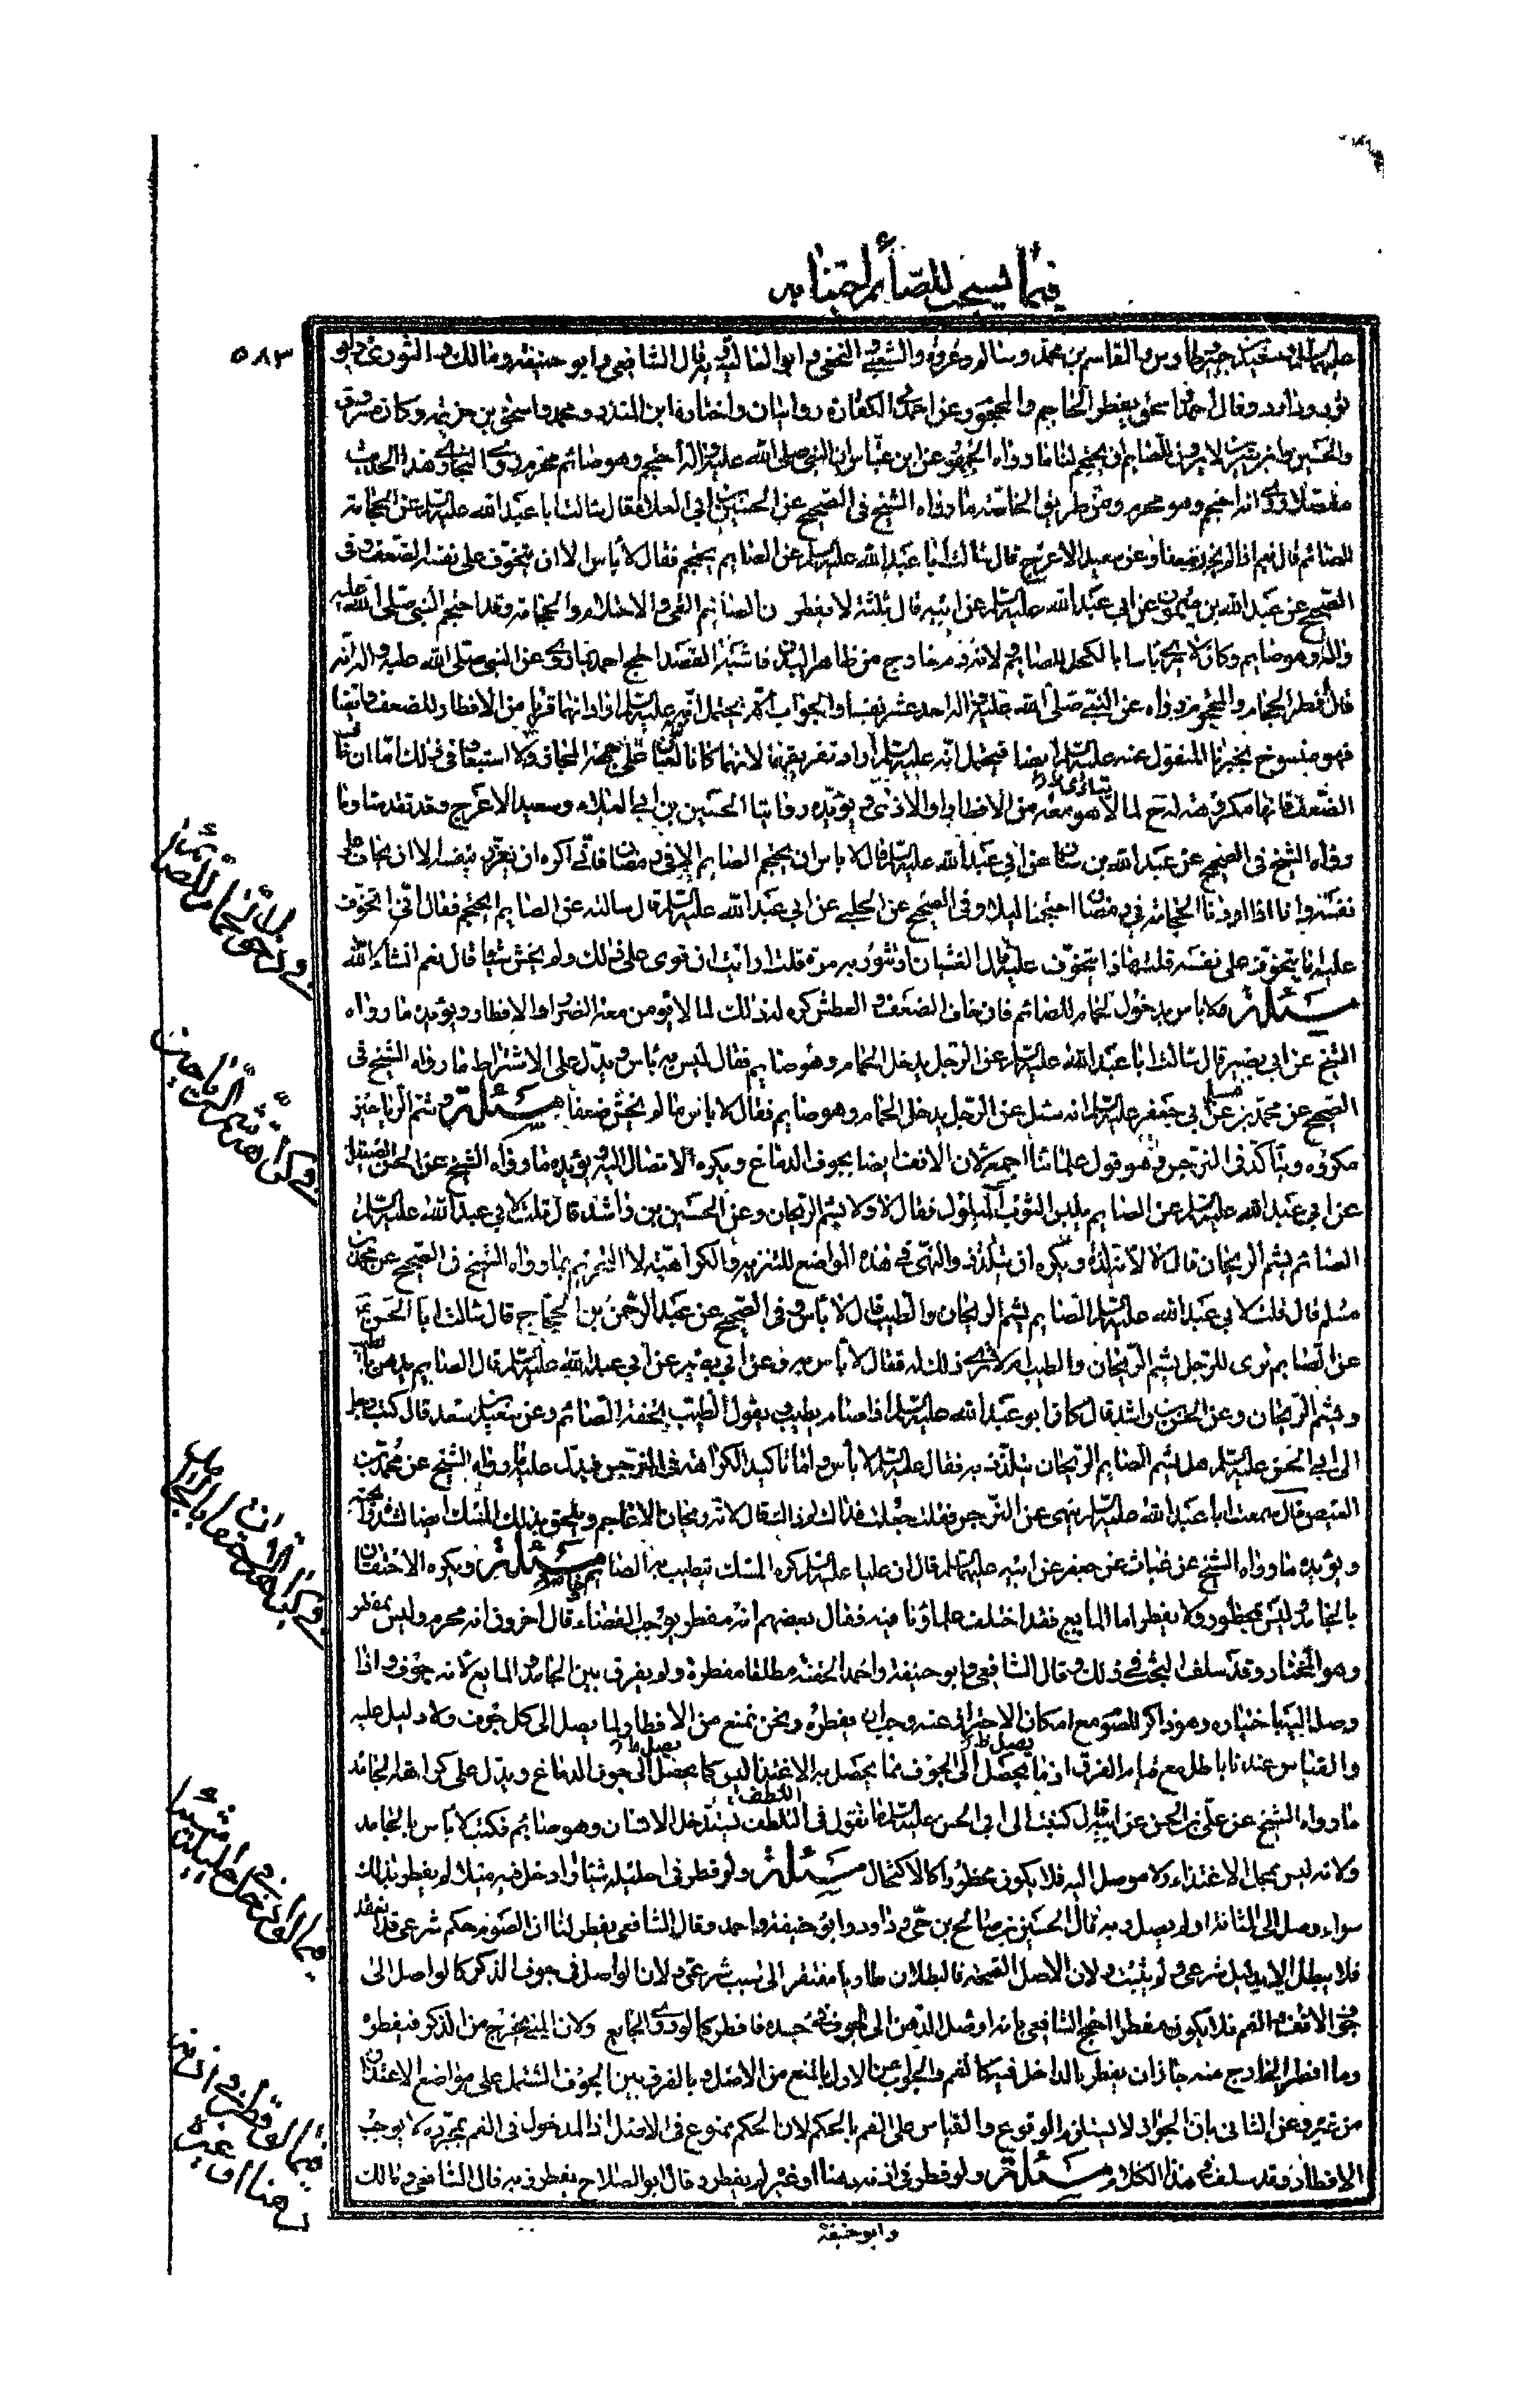 فيما يستحب للصائم اجتنابه
٥٨٣
عليهما السلام وسعيد بن جبير وطاوس والقاسم بن محمد وسالم وعروة والشعبي والنخعي وابو العالية وبه قال الشافعي وابو حنيفة ومالك والثوري وابو
ثور وداود وقال احمد واسحق يفطر الحاجم والمحجوم وعن احمد في الكفارة روايتان واختاره ابن المنذر ومحمد بن اسحق بن خزيمة وكان مسروق
والحسن وابن سيرين لا يرون للصائم ان يحتجم لنا ما رواه الجمهور عن ابن عباس ان النبي صلى الله عليه واله احتجم وهو صائم محرم وهذا الحديث
انه احتجم وهو محرم ومن طريق الخاصة ما رواه الشيخ في الصحيح عن الحسين بن ابي العلا قال سالت ابا عبد الله عليه السلام عن الحجامة
للصائم قال نعم اذا لم يخف ضعفا وعن سعيد الاعرج قال سالت ابا عبد الله عليه السلام عن الصايم يحتجم فقال لا باس الا ان يتخوف على نفسه الضعف وفي
الصحيح عن عبد الله بن ميمون عن ابي عبد الله عليه السلام عن ابيه قال ثلثة لا يفطرن الصائم القي والاحتلام والحجامة وقد احتجم النبي صلى الله عليه
واله وهو صايم وكان لا يرى باسا بالكحل للصايم ولانه دم خارج من ظاهر البدن فاشبه الفصد احتج احمد بما روي عن النبي صلى الله عليه واله انه
قال افطر الحاجم والمحجوم رواه عن النبي صلى الله عليه واله احد عشر نفسا والجواب انه يحتمل انه عليه السلام اراد انهما قربا من الافطار للضعف وايضا
فهو منسوخ بخبرنا المنقول عنه عليه السلام ايضا فيحتمل انه عليه السلام اراد تفريقهما لانهما كانا يغتابان على جهة المجاز ولا استبعاد في ذلك اما ان خاف
الضعف فانها مكروهة له ح لما لا يؤمن معه من الافطار او الاذى ويؤيده روايتا الحسين بن ابي العلاء وسعيد الاعرج وقد تقدمتا وما
رواه الشيخ في الصحيح عن عبد الله بن سنان عن ابي عبد الله عليه السلام قال لا باس ان يحتجم الصايم الا في رمضان فاني اكره ان يغرر بنفسه الا ان يخاف على
نفسه وانا اذا اردنا الحجامة في رمضان احتجمنا ليلا وفي الصحيح عن الحلبي عن ابي عبد الله عليه السلام قال سالته عن الصايم ايحتجم فقال اني اتخوف
عليه اما يتخوف على نفسه قلت ماذا يتخوف عليه قال الغشيان او تثور به مرة قلت ارايت ان قوى على ذلك ولم يخش شيئا قال نعم انشاء الله
مسئلة ولا باس بدخول الحمام للصائم فان خاف الضعف او العطش كره له ذلك لما لا يؤمن معه الضرر او الافطار ويؤيده ما رواه
الشيخ عن ابي بصير قال سالت ابا عبد الله عليه السلام عن الرجل يدخل الحمام وهو صايم فقال ليس به باس ويدل على الاشتراط ما رواه الشيخ في
الصحيح عن محمد بن مسلم عن ابي جعفر عليه السلام انه سئل عن الرجل يدخل الحمام وهو صايم فقال لا باس ما لم يخش ضعفا مسئلة وشم الرياحين
مكروه ويتاكد في النرجس وهو قول علمائنا اجمع لان الانف ايضا بجوف الدماغ ويكره الاتصال اليه ويؤيده ما رواه الشيخ عن الحسن الصيقل
عن ابي عبد الله عليه السلام عن الصايم يلبس الثوب المبلول فقال لا ولا يشم الريحان وعن الحسين بن راشد قال قلت لابي عبد الله عليه السلام
الصائم يشم الريحان قال لا لانه لذة ويكره ان يتلذذ والنهي في هذه المواضع للتنزيه والكراهية لا التحريم بما رواه الشيخ في الصحيح عن محمد بن
مسلم قال قلت لابي عبد الله عليه السلام الصايم يشم الريحان والطيب قال لا باس وفي الصحيح عن عبد الرحمن بن الحجاج قال سالت ابا الحسن عليه السلام
عن الصايم ترى للرجل يشم الريحان والطيب ام لا ترى ذلك له فقال لا باس به وعن ابي بصير عن ابي عبد الله عليه السلام قال الصايم يدهن بالطيب
ويشم الريحان وعن الحسن بن راشد قال كان ابو عبد الله عليه السلام اذا صام تطيب ويقول الطيب تحفة الصائم وعن سعد بن سعد قال كتب رجل
الى ابي الحسن عليه السلام هل يشم الصايم الريحان يتلذذ به فقال عليه السلام لا باس واما تاكيد الكراهة في النرجس فيدل عليه ما رواه الشيخ عن محمد بن
الفيص قال سمعت ابا عبد الله عليه السلام ينهى عن النرجس فقلت جعلت فداك لم ذاك قال لانه ريحان الاعاجم ويلحق بذلك المسك ايضا لشدة رائحته
ويؤيده ما رواه الشيخ عن غياث عن جعفر عن ابيه عليهما السلام قال ان عليا عليه السلام كره المسك يتطيب به الصايم مسئلة ويكره الاحتقان
بالجامد وليس بمحظور ولا يفطر اما المايع فقد اختلف علماؤنا فيه فقال بعضهم انه مفطر يوجب القضاء وقال اخرون انه محرم وليس بمفطر
وهو المختار وقد سلف البحث في ذلك وقال الشافعي وابو حنيفة واحمد الحقنة مطلقا مفطرة ولم يفرق بين الجامد والمايع لانه جوف واذا
وصل اليه باختياره وهو ذاكر للصوم مع امكان الاحتراز عنه وجب ان يفطره ونحن نمنع من الافطار لما يصل الى كل جوف ولا دليل عليه
والقياس عندنا باطل مع قيام الفرق اذ ما يحصل الى الجوف مما يحصل به الاغتذاء ليس كما يحصل الى جوف الدماغ ويدل على كراهة الجامد
ما رواه الشيخ عن علي بن الحسن عن ابيه قال كتبت الى ابي الحسن عليه السلام ما تقول في التلطف يستدخل الانسان وهو صائم فكتب لا باس بالجامد
ولانه ليس بمحل الاغتذاء ولا موصل اليه فلا يكون محظورا كالاكتحال مسئلة ولو قطر في احليله شيئا او ادخل فيه ميلا لم يفطر بذلك
سواء وصل الى المثانة او لم يصل وبه قال الحسن بن صالح بن حي وداود وابو حنيفة واحمد وقال الشافعي يفطر لنا ان الصوم حكم شرعي قد انعقد
فلا يبطل الا بدليل شرعي ولم يثبت ولان الاصل الصحة فالبطلان طار يا مفتقر الى سبب شرعي ولان الواصل في جوف الذكر كالواصل الى
الانف والفم فلا يكون مفطرا احتج الشافعي بانه اوصل الدهن الى جوف في جسده فافطر كما لو داوى الجايع ولان المني يخرج من الذكر فيفطره
وما افطر الخارج منه جاز ان يفطر بالداخل فيه كالفم والجواب عن الاول بالمنع من الاصل وبالفرق بين الجوف المشتمل على مواضع الاغتذاء
من غيره وعن الثاني بان الجواز لا يستلزم الوقوع والقياس على الفم بالحكم لان الحكم ممنوع في الاصل اذ المدخول في الفم بمجرده لا يوجب
الافطار وقد سلف هذا الكلام مسئلة ولو قطر في اذنه دهنا او غيره لم يفطر وقال ابو الصلاح يفطر وبه قال الشافعي ومالك
وابو حنيفة